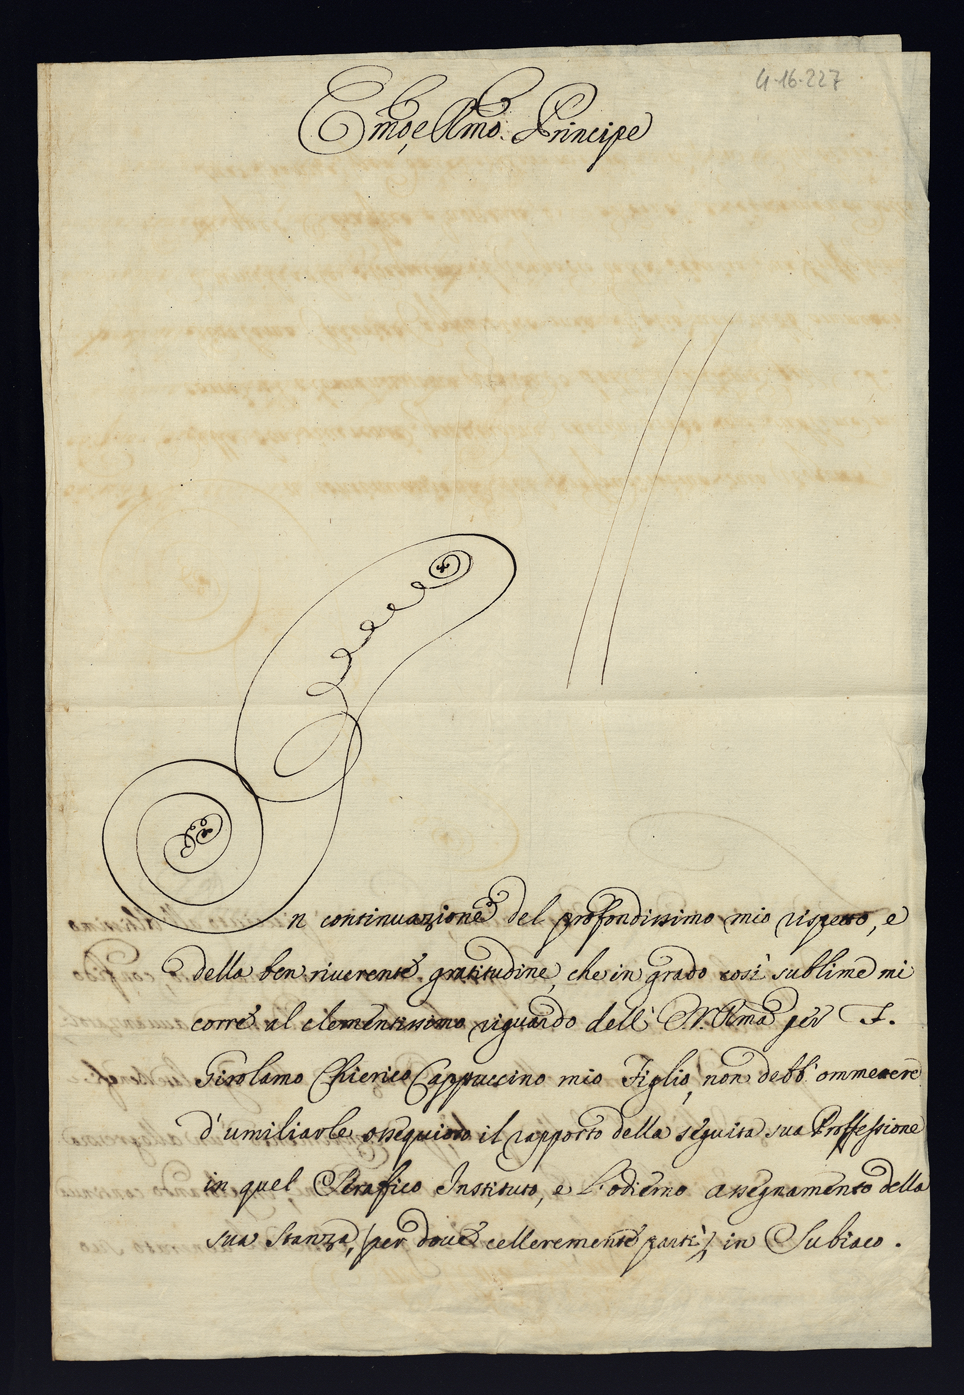 4-16-227
Emo, e Rmo. Principe
In continuazione del profondissimo mio rispetto, e
della ben riverente gratitudine, che in grado così sublime mi
corre al clementissimo riguardo dell' V. Rma per F.
Girolamo Chierico Cappuccino mio Figlio, non debb' ommettere
d' umiliarle ossequioso il rapporto della seguita sua Proffessione
in quel Serafico Instituto, e l' odierno assegnamento della
sua Stanza, (per dove celleremente partì,) in Subiaco.